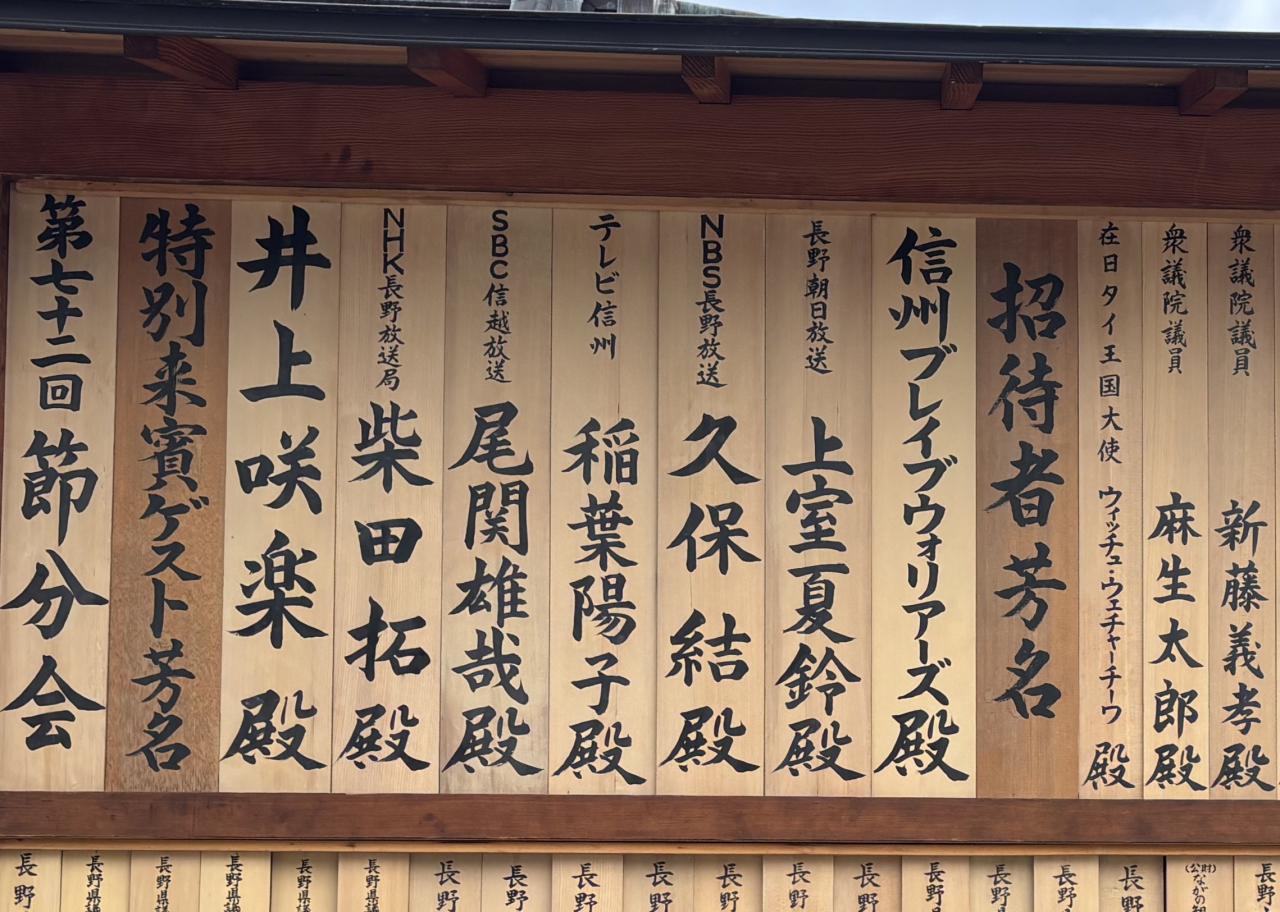 第七十二回 節分会
特別来賓ゲスト芳名
井上咲楽 殿
NHK長野放送局 柴田拓 殿
SBC信越放送 尾関雄哉 殿
テレビ信州 稲葉陽子 殿
NBS長野放送 久保結 殿
長野朝日放送 上室夏鈴 殿
信州ブレイブウォリアーズ 殿
招待者芳名
在日タイ王国大使 ウィッチュ・ウェチャーチーワ 殿
衆議院議員 麻生太郎 殿
衆議院議員 新藤義孝 殿
長野
長野県議
長野県議
長野県議
長野県議
長野県議
長野
長野
長野
長野
長野
長野
長野
長野県
長野県
長野
長野
(公財)ながの
長野